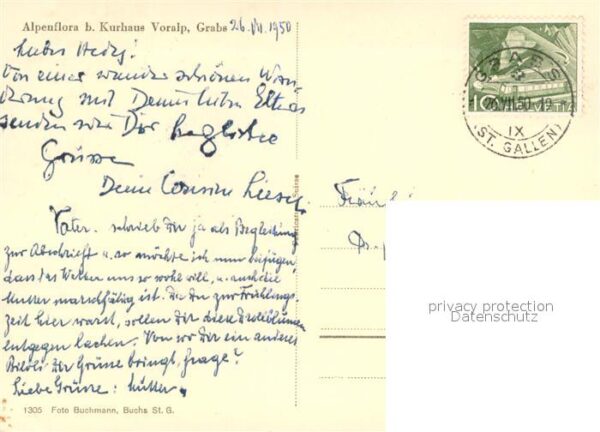 Alpenflora b. Kurhaus Voralp, Grabs 26.VII.1950
Liebes Hedi!
Von einer wunderschönen Wan-
derung mit Deinen lieben Eltern
senden wir Dir herzliche
Grüsse
Deine Cousine Liesel.
Vater schrieb Dir ja als Begleitung
zur Abschrift u. so möchte ich nun beifügen,
dass das Wetter uns so wohl will, u. auch die
Mutter marschfähig ist. Da Du zur Frühlings-
zeit hier warst, sollen Dir diese
entgegen lachen. Von wo Dir ein anderes
Bildli der Grüsse bringt, frage?
Liebe Grüsse: Mutter.
1305 Foto Buchmann, Buchs St. G.
GRABS
26.VII.50.19
IX
(ST. GALLEN)
Fräulein
privacy protection
Datenschutz